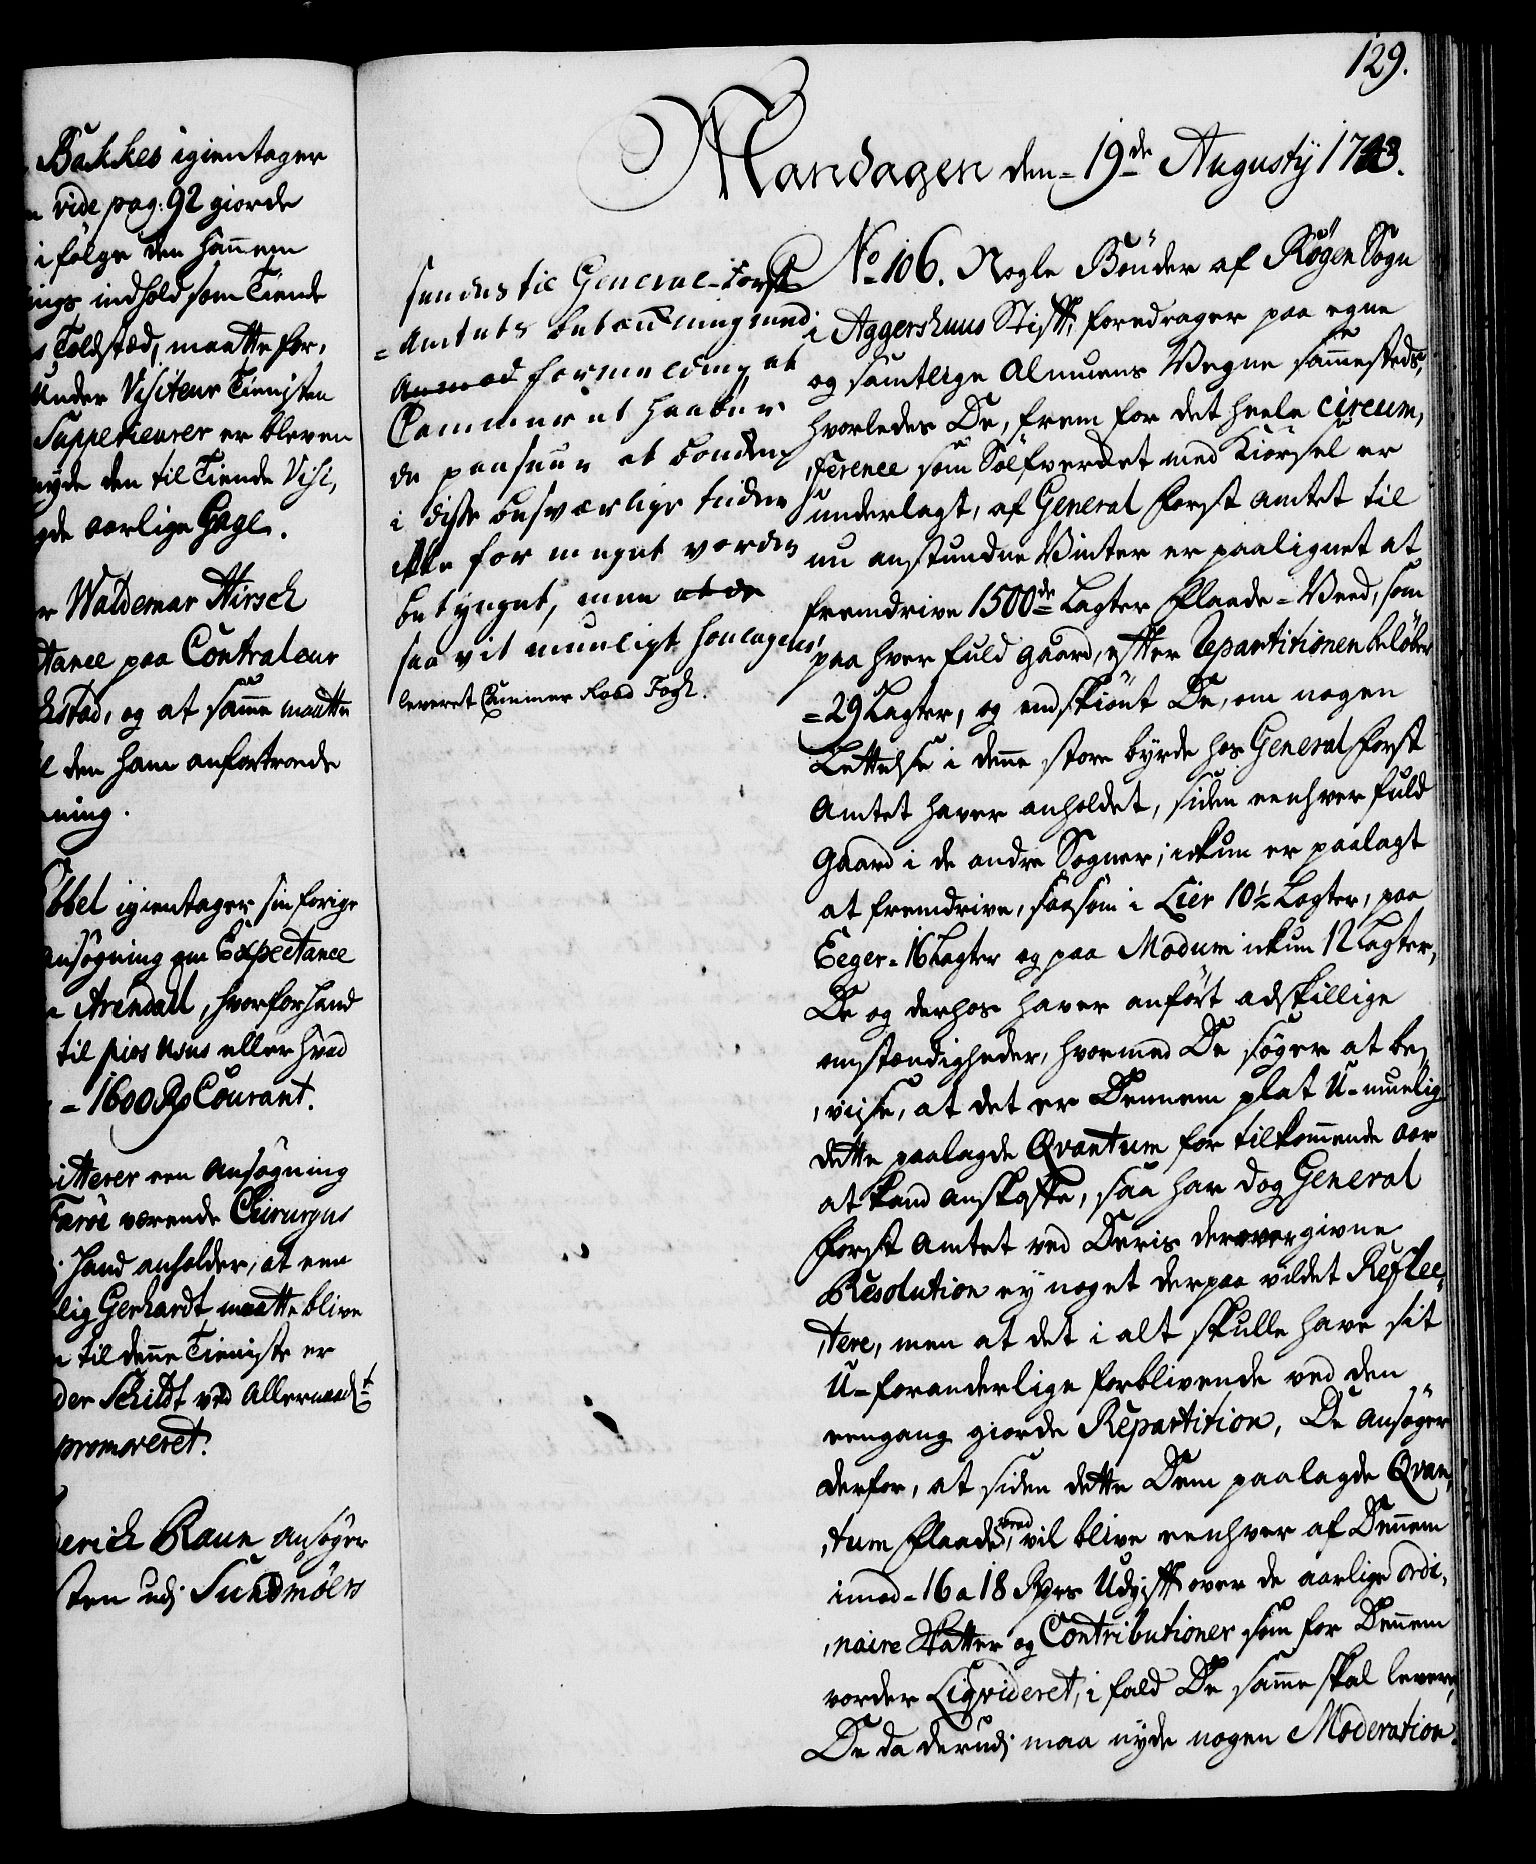 Bakkes igientager
vide pag: 92 giorde
i følge den hannem
ings indhold som Tiende
Toldstæd, maatte for,
Under Visiteur Tienisten
Suppetieurer er bleven
nyde den til Tiende Visi,
gde aarlige Gage.
Waldemar Hirsch
tance paa Contraleur
kstad, og at samme maatte
den ham anfortroede
ning.
bbel igientager sin forige
ansøgning om Expectance
Arendall, hvorfor hand
til pios usus eller hvad
= 1600 Rd Courant.
itterer een Ansøgning
Færøe værende Chirurgus
hand anholder, at een
lig Gerhardt maatte blive
til denne Tieniste er
der Schildt ved Allernaad:t
promoveret.
erich Raun ansøger
sten udj Sundmöers
129.
Mandagen den 19de Augustÿ 1743.
sendes til General-Forst
Amtets betænkning med
anmod formelding at
Cammeret haaber
de paaseer at bonden
i disse besværlige tider
ikke for meget vorder
betynget, men at de
saa vit mueligt
leveret Cammer Raad Fogh.
No 106. Nogle Bønder af Røgen Sogn
i Aggershuus Stift, foredrager paa egne
og samtlige Almuens Vegne sammesteds,
hvorledes De, frem for det heele circum,
,ference som Sølfverket med Kiørsel er
underlagt, af General Forst Amtet til
nu anstundne Vinter er paalignet at
fremdrive 1500de Lagter Flaade-Veed, som
paa hver fuld gaard, efter Repartitionen beløber
= 29 Lagter, og endskiønt De, om nogen
Lettelse i denne store byrde hos General Forst
Amtet haver anholdet, siden eenhver fuld
Gaard i de andre Sogner, ickun er paalagt
at fremdrive, saasom i Lier 10½ Lagter, paa
Eeger 16 Lagter og paa Modum ickun 12 Lagter,
De og derhos haver anført adskillige
omstændigheder, hvormed De søger at be,
,viise, at det er Dennem plat U-muelig
dette paalagde Qvantum for tilkommende Aar
at kand anskaffe, saa har dog General
Forst Amtet ved Deris derover givne
Resolution ey noget derpaa vildet Reflec,
,tere, men at det i alt skulle have sit
U-foranderlige forblivende ved den
eengang giorde Repartition, De ansøger
derfor, at siden dette Dem paalagde Qvan,
,tum Flaade veed, vil blive eenhver af Dennem
imod 16 a 18 Rdrs Udgift over de aarlige ordi,
,naire Skatter og Contributioner som for Dennem
vorder Liqvideret, i fald De samme skal levere,
De da derudj maa nyde nogen Moderation.